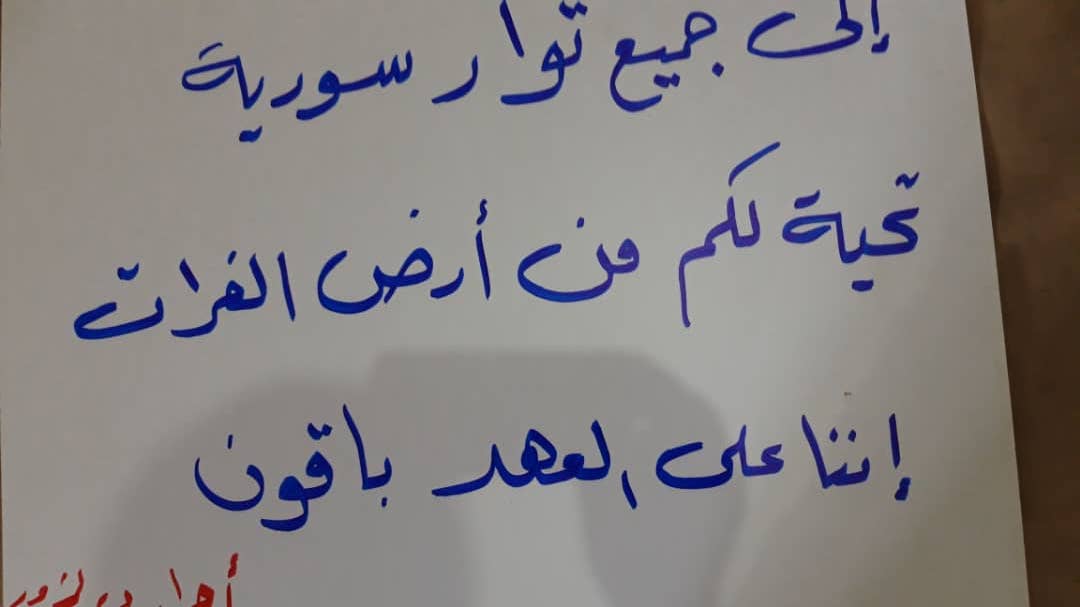 إلى جميع توار سورية
تحية لكم من أرض الفرات
إننا على العهد باقون
أحرار